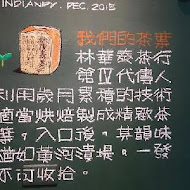 INDIANDY. DEC. 2015
我們的茶葉
林華泰茶行
第四代傳人
利用歲月累積的技術
適當烘焙製成精緻茶
葉。入口後，其韻味
猶如黃河潰堤，一發
不可收拾。